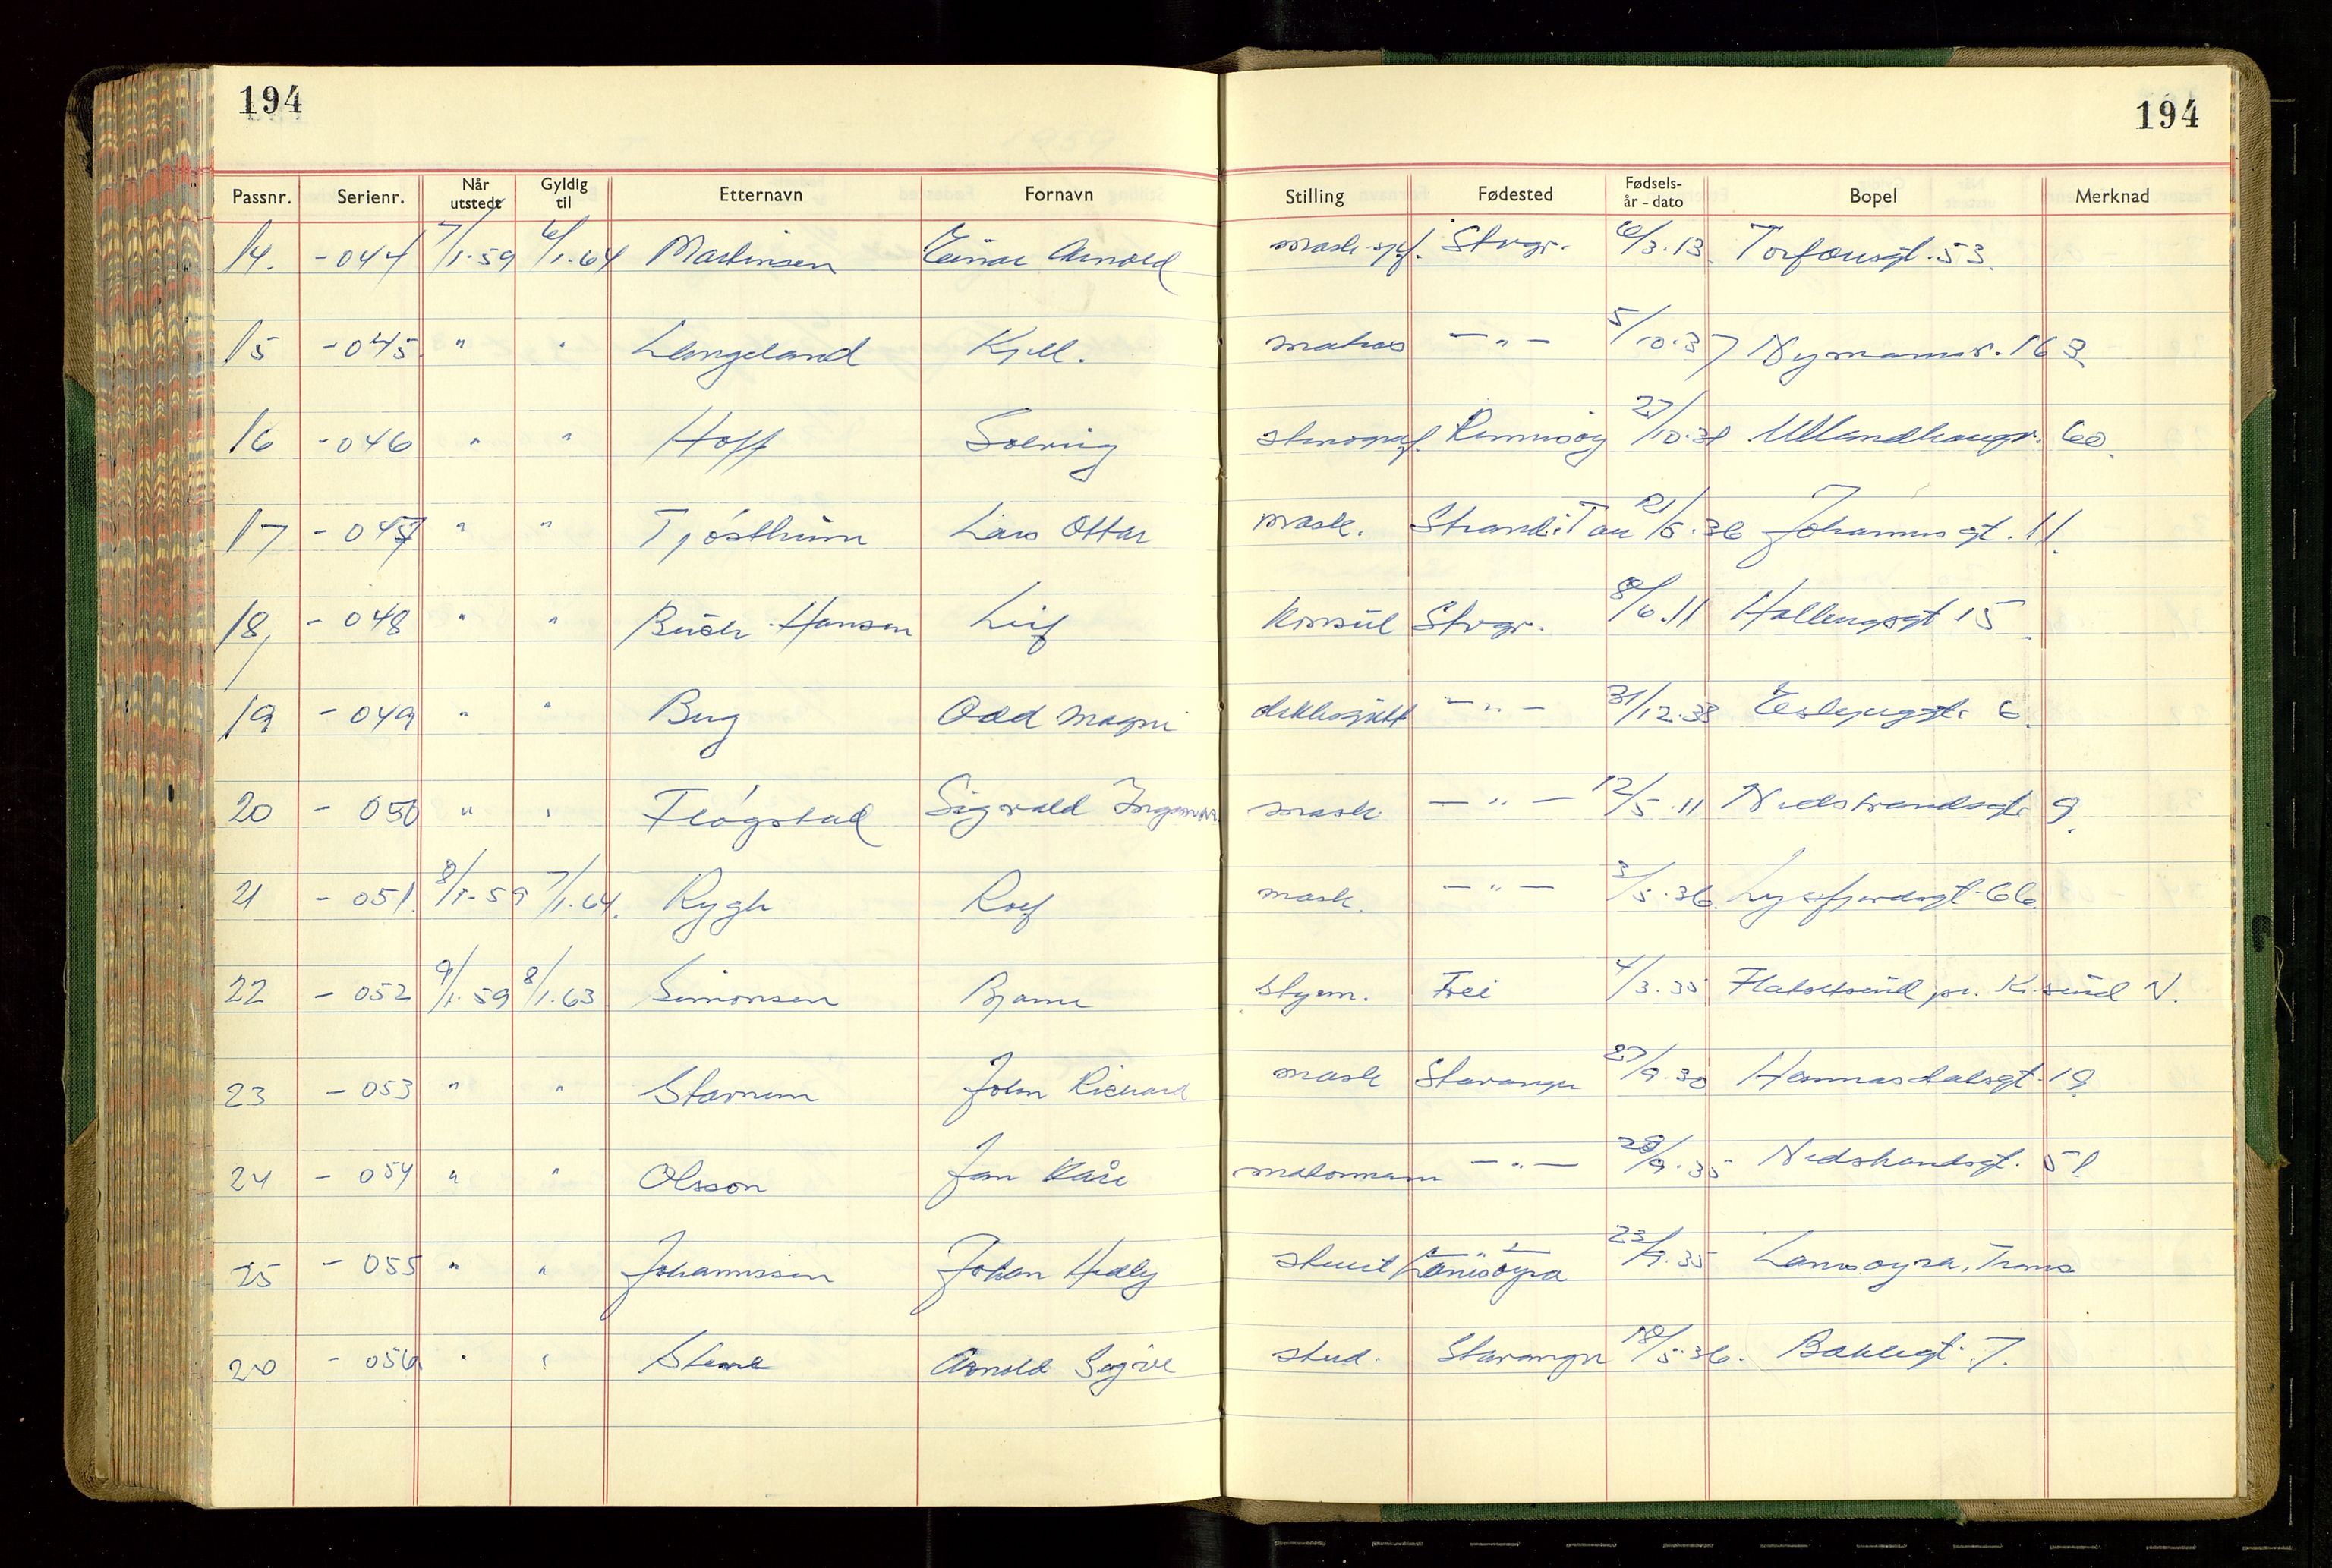 194 194
Passnr. Serienr. Når utstedt Gyldig til Etternavn Fornavn Stilling Fødested Fødsels-år - dato Bopel Merknad
14. -044 7/1.59 6/1.64 Martinsen Einar Arnold Stvgr. 6/3.13. 53.
15 -045. " " Langeland Kjell. matros —"— 5/10.37 163
16 -046 " " Hoff Solveig stenograf. Rennesøy 27/10.31 Ullandhaugv. 60.
17 -047 " " Tjøstheim Lars Ottar mask. Strand: Tau 21/5.36 Johannesgt. 11.
18, -048 " " Buch-Hansen Leif Konsul Stvgr. 8/6.11 15
19 -049 " " Berg Odd Magni dekksgutt —"— 31/12.33 6.
20 -050 " " Fløgstad Sigvald Ingemar mask —"— 12/5.11 Nedstrandsgt. 9.
21 -051. 8/1-59 7/1.64. Rygh Rolf mask. —"— 3/5.36. Lysefjordsgt. 66.
22 -052 9/1.59 8/1.63 Simonsen Bjarne styrm. Frei 4/3.35 Flatsetsund pr. K.sund N.
23 -053 " " Stornem John Richard mask Stavanger 27/9.30 Hannasdalsgt. 19
24 -054 " " Olsson Jan Kåre motormann —"— 28/9.35 Nedstrandsgt. 51
25 -055 " " Johannissen Johan Hedly stuert 23/9.35 Troms
26 -056 " " Stene Arnold Sigve stud. Stavanger 18/5.36. Bakkegt. 7.